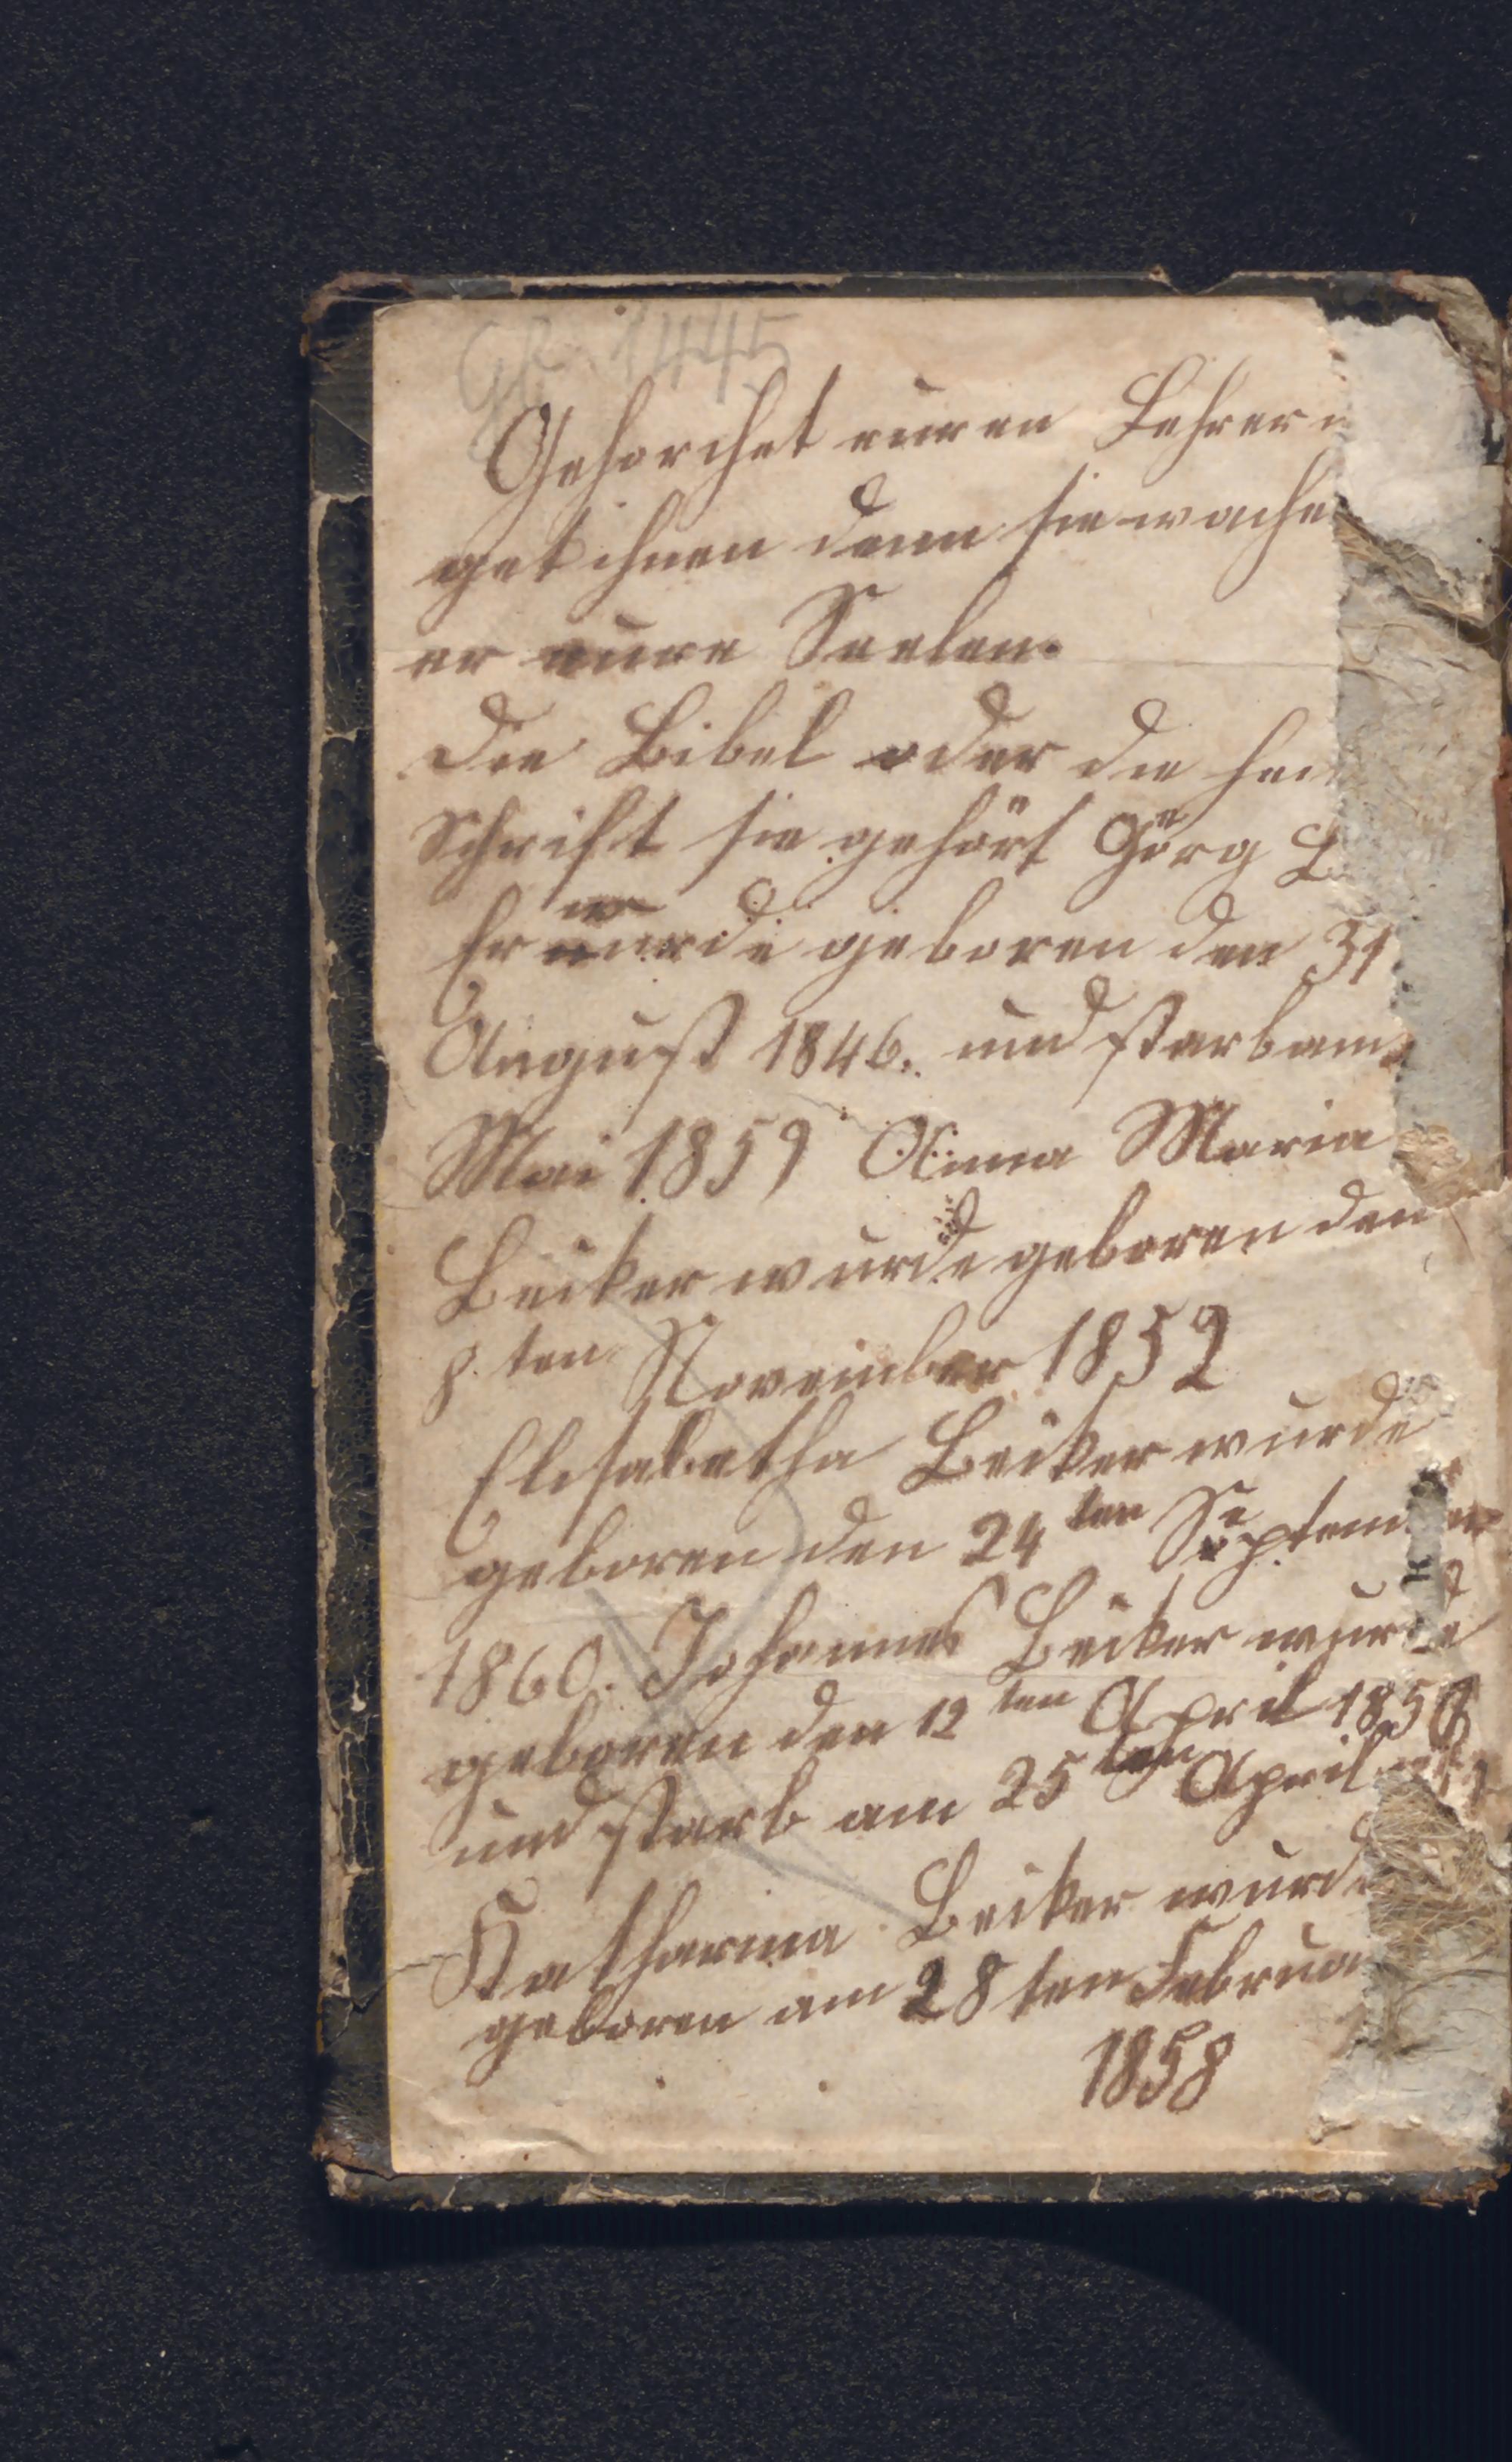 Gk 1445
Gehorchet euren Lehrer
get ihnen denn sie wache
er eure Seelen.
Die Bibel oder die hei
Schrift sie gehört Görg B
Er wurde geboren den 31
August 1846. und starb am
Mai 1859 Anna Maria
Beiker wurde geboren den
8. ten November 1852
Elisabetha Beiker wurde
geboren den 24ten Septem er
1860. Johannes Beiker wurde
geboren den 12ten April 185
und starb am 25ten April
Katharina Beiker wurde
geboren am 28ten Februa
1858